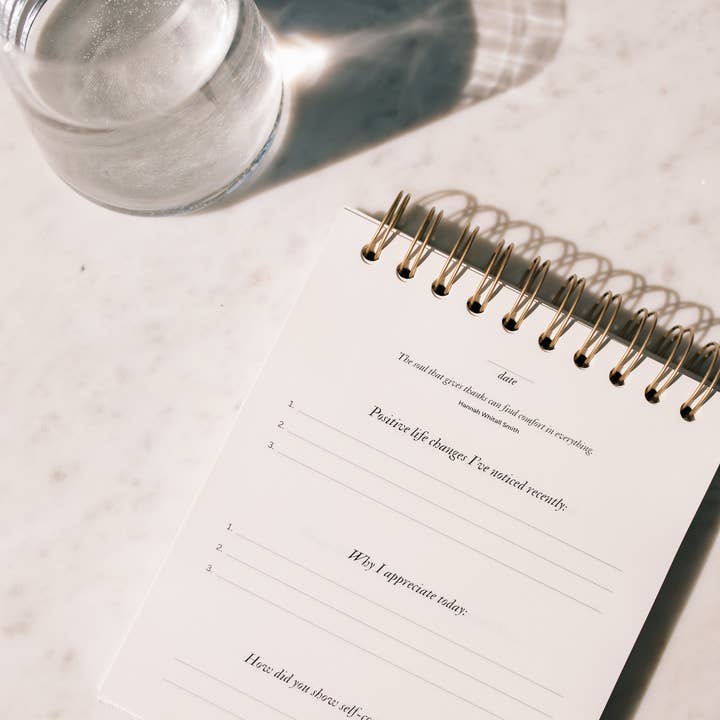 date
The soul that gives thanks can find comfort in everything.
Hannah Whitall Smith
Positive life changes I've noticed recently:
1.
2.
3.
Why I appreciate today:
1.
2.
3.
How did you show self-co